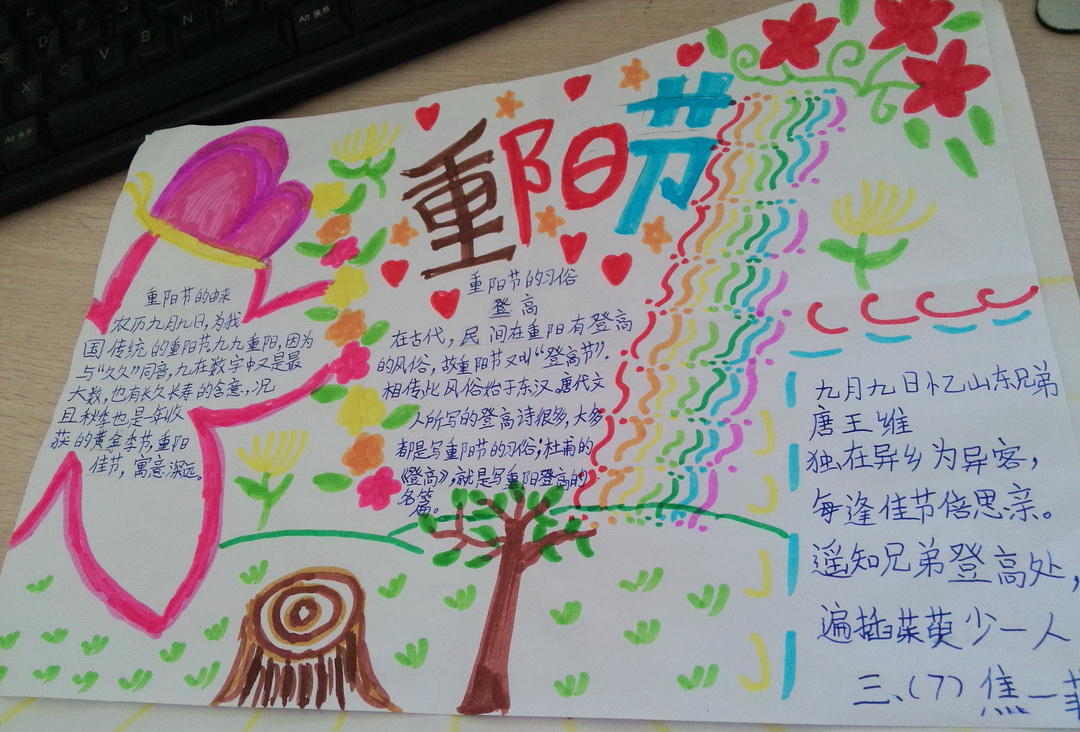 重阳节
重阳节的由来
农历九月九日,为我
国传统的重阳节,九九重阳,因为
与“久久”同音,九在数字中又是最
大数,也有长久长寿的含意,况
且秋季也是一年收
获的黄金季节,重阳
佳节,寓意深远。
重阳节的习俗
登高
在古代,民间在重阳有登高
的风俗,故重阳节又叫“登高节”.
相传此风俗始于东汉.唐代文
人所写的登高诗很多,大多
都是写重阳节的习俗;杜甫的
《登高》,就是写重阳登高的
名篇。
九月九日忆山东兄弟
唐王维
独在异乡为异客,
每逢佳节倍思亲。
遥知兄弟登高处,
遍插茱萸少一人
三、(7) 焦一